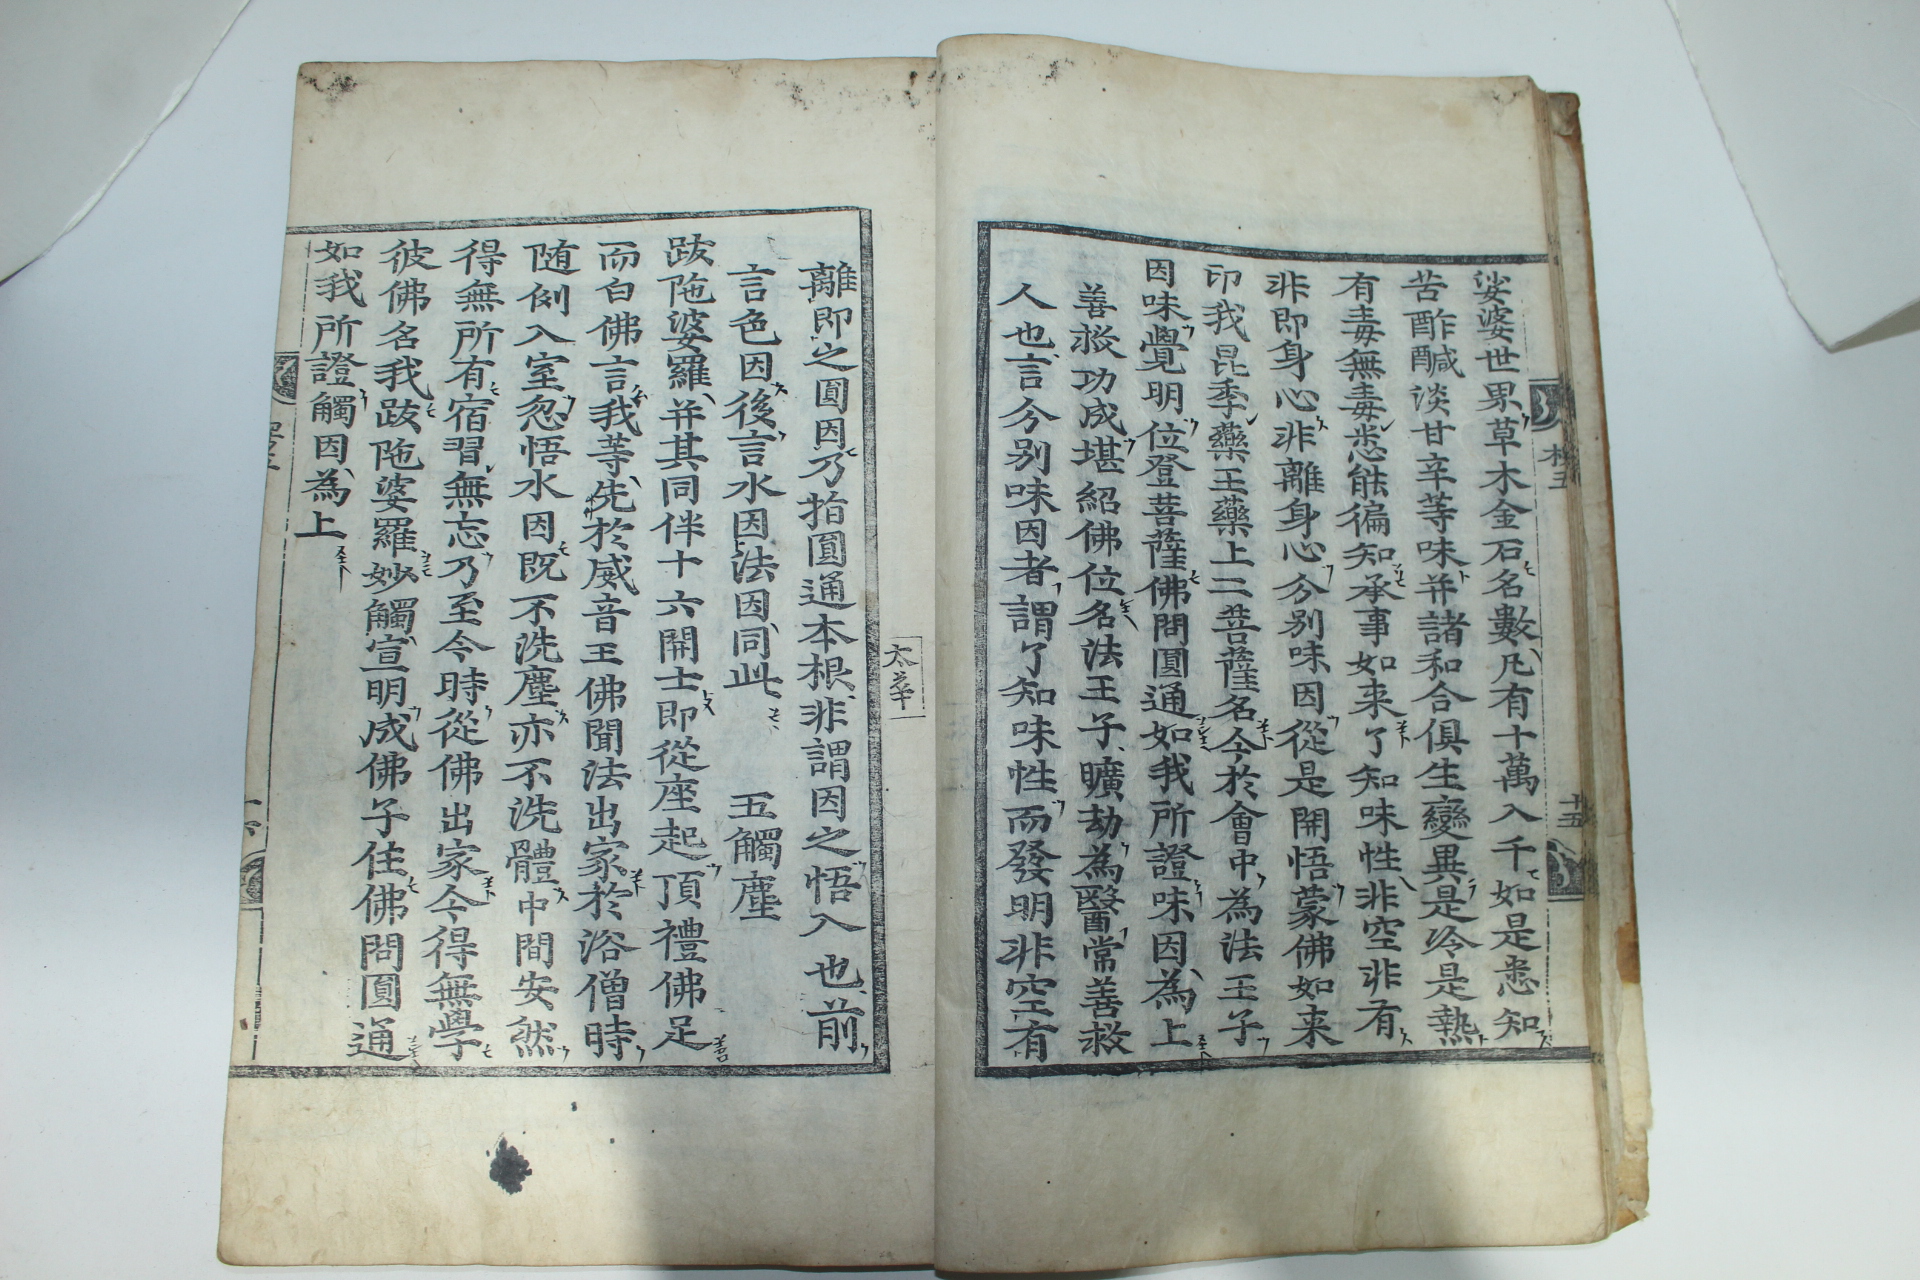 娑婆世界草木金石名數凡有十萬八千如是悉知
苦酢醎淡甘辛等味并諸和合俱生變異是冷是熱
有毒無毒悉能徧知承事如来了知味性非空非有
非即身心非離身心分別味因從是開悟蒙佛如来
印我昆季藥王藥上二菩薩名今於會中為法王子
因味覺明位登菩薩佛問圓通如我所證味因為上
善救功成堪紹佛位名法王子曠劫為醫常善救
人也言分別味因者謂了知味性而發明非空有
離即之圓因乃指圓通本根非謂因之悟入也前
言色因後言水因法因同此 五觸塵
跋陁婆羅并其同伴十六開士即從座起頂禮佛足
而白佛言我等先於威音王佛聞法出家於浴僧時
随例入室忽悟水因既不洗塵亦不洗體中間安然
得無所有宿習無忘乃至今時從佛出家今得無學
彼佛名我跋陁婆羅妙觸宣明成佛子住佛問圓通
如我所證觸因為上